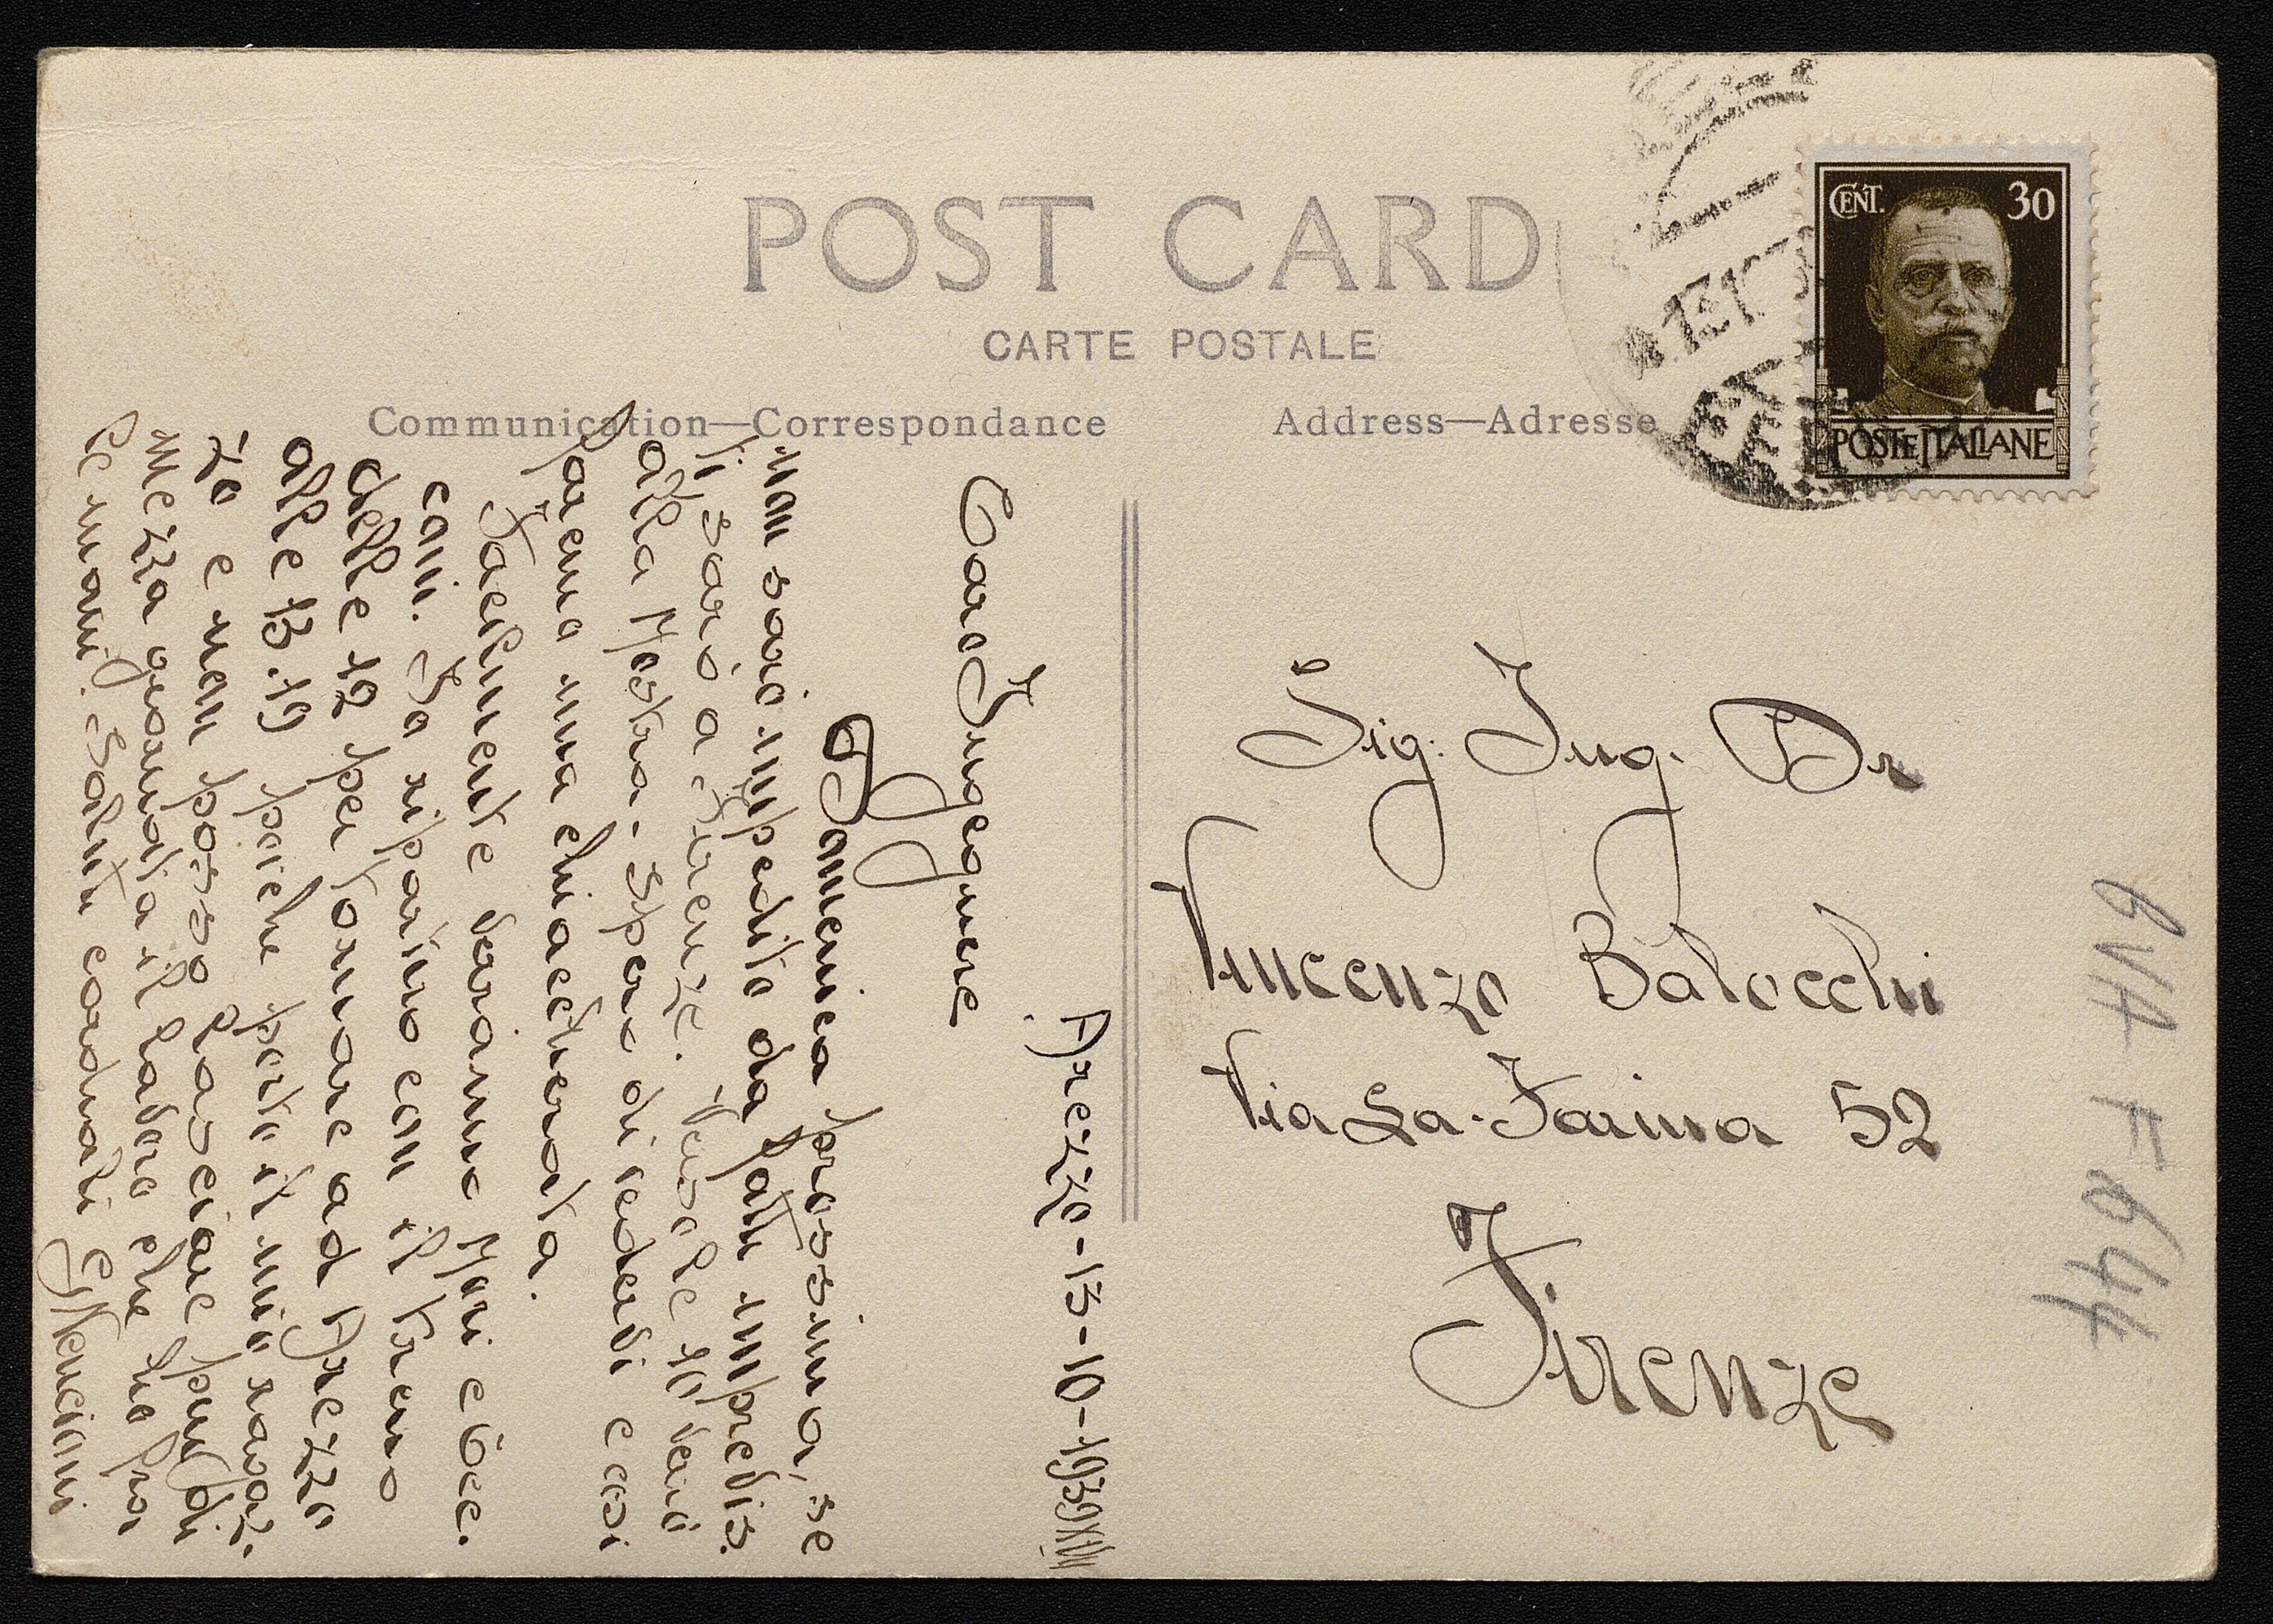 POST CARD
CARTE POSTALE
Communication—Correspondance
Address—Adresse
CENT. 30
POSTE ITALIANE
Arezzo-13-10-1939 XVII
Caro Ingegnere
Domenica prossima, se
non sarò impedito da fatti imprevis.
ti sarò a Firenze. Verso le 10 verrò
alla Mostra. Spero di vederVi e così
faremo una chiacchierata.
Facilmente verranno Mori e
Io riparto con il treno
delle 12 per tornare ad Arezzo
alle 13.19 poiché porto il mio ragaz.
zo e non posso lasciare più di
mezza giornata il lavoro che ho fra
le mani. Saluti cordiali
Sig: Ing. Dr
Vincenzo Balocchi
Via La-Farina 52
Firenze
BVA F 644